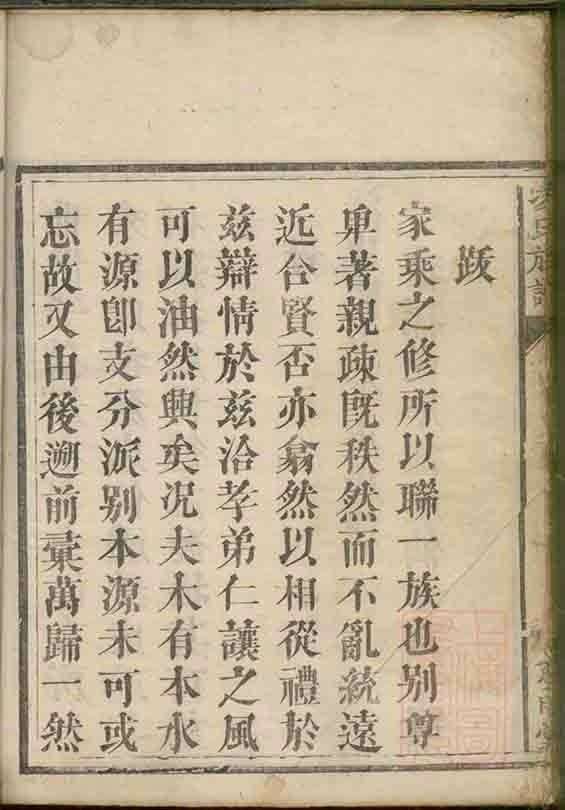 跋
家乘之修所以聯一族也别尊
卑著親疎旣秩然而不亂統遠
近合賢否亦翕然以相從禮於
兹辯情於兹洽孝弟仁讓之風
可以油然興矣况夫木有本水
有源卽支分派别本源未可或
忘故又由後遡前彙萬歸一然
氏族譜